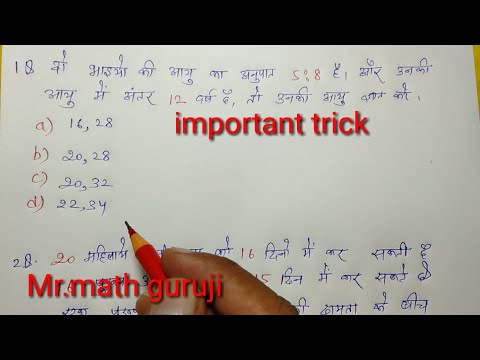 1Q दो भाइयो की आयु का अनुपात 5:8 है। और उनकी
आयु में अंतर 12 वर्ष है, तो उनकी आयु ज्ञात करो।
important trick
a) 16, 28
b) 20, 28
c) 20, 32
d) 22, 34
2Q. 20 महिलाये को 16 दिनो में कर सकती है
Mr.math guruji 15 दिन में कर सकते है
एक क्षमता के बीच